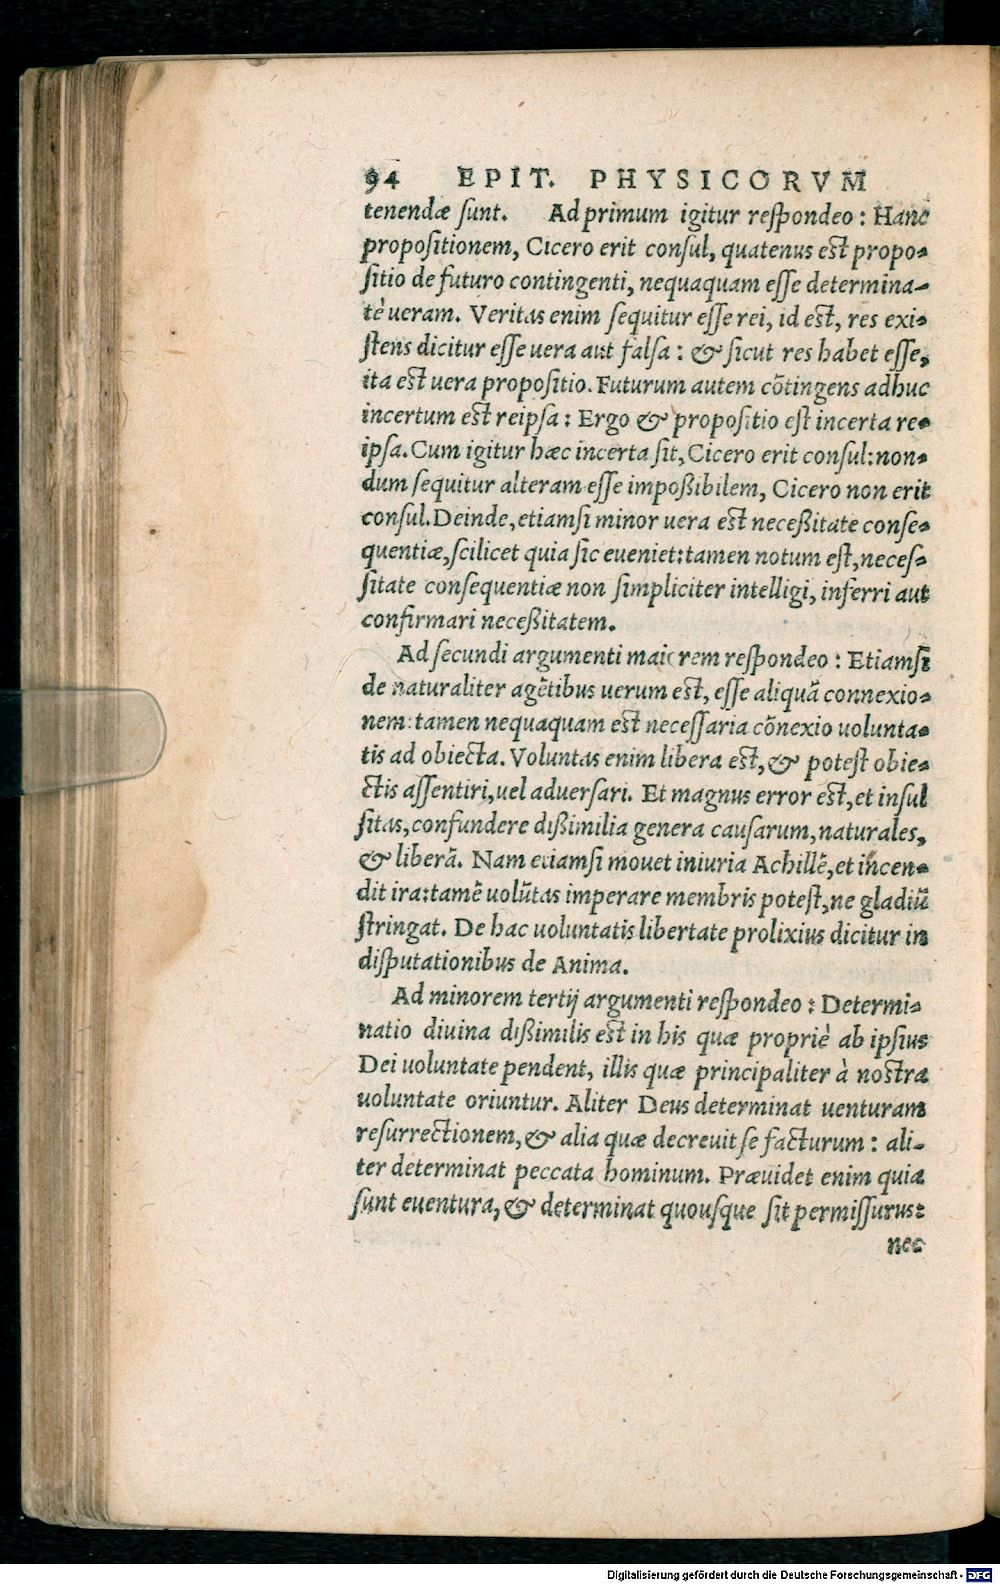 94 EPIT. PHYSICORVM
tenendæ sunt. Ad primum igitur respondeo: Hanc
propositionem, Cicero erit consul, quatenus est propo-
sitio de futuro contingenti, nequaquam esse determina-
tè ueram. Veritas enim sequitur esse rei, id est, res exi-
stens dicitur esse uera aut falsa: & sicut res habet esse,
ita est uera propositio. Futurum autem cõtingens adhuc
incertum est reipsa: Ergo & propositio est incerta re-
ipsa. Cum igitur hæc incerta sit, Cicero erit consul: non-
dum sequitur alteram esse impoßibilem, Cicero non erit
consul. Deinde, etiamsi minor uera est neceßitate conse-
quentiæ, scilicet quia sic eueniet: tamen notum est, neces-
sitate consequentiæ non simpliciter intelligi, inferri aut
confirmari neceßitatem.
Ad secundi argumenti maiorem respondeo: Etiamsi
de naturaliter agẽtibus uerum est, esse aliquã connexio-
nem: tamen nequaquam est necessaria cõnexio uolunta-
tis ad obiecta. Voluntas enim libera est, & potest obie-
ctis assentiri, uel aduersari. Et magnus error est, et insul
sitas, confundere dißimilia genera causarum, naturales,
& liberã. Nam etiamsi mouet iniuria Achillẽ, et incen-
dit ira: tamẽ uolũtas imperare membris potest, ne gladiũ
stringat. De hac uoluntatis libertate prolixius dicitur in
disputationibus de Anima.
Ad minorem tertij argumenti respondeo: Determi-
natio diuina dißimilis est in his quæ propriè ab ipsius
Dei uoluntate pendent, illis quæ principaliter à nostra
uoluntate oriuntur. Aliter Deus determinat uenturam
resurrectionem, & alia quæ decreuit se facturum: ali-
ter determinat peccata hominum. Præuidet enim quia
sunt euentura, & determinat quousque sit permissurus:
nec
Digitalisierung gefördert durch die Deutsche Forschungsgemeinschaft - DFG